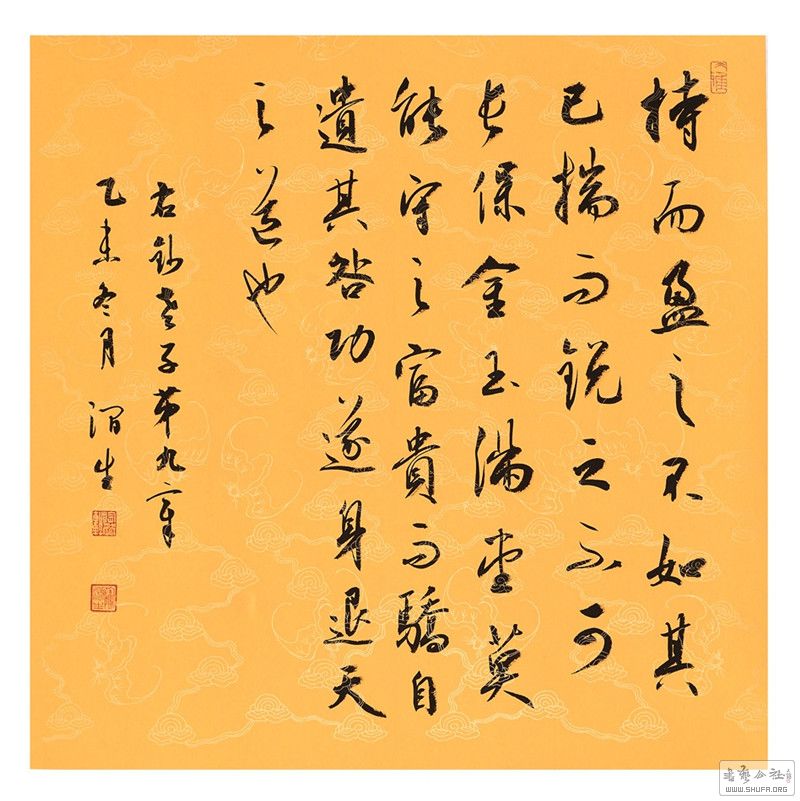 持而盈之不如其
已揣而锐之不可
长保金玉满堂莫
能守之富贵而骄自
遗其咎功遂身退天
之道也
右钞老子第九章
乙未冬月 渭生
书艺公社
WWW.SHUFA.ORG